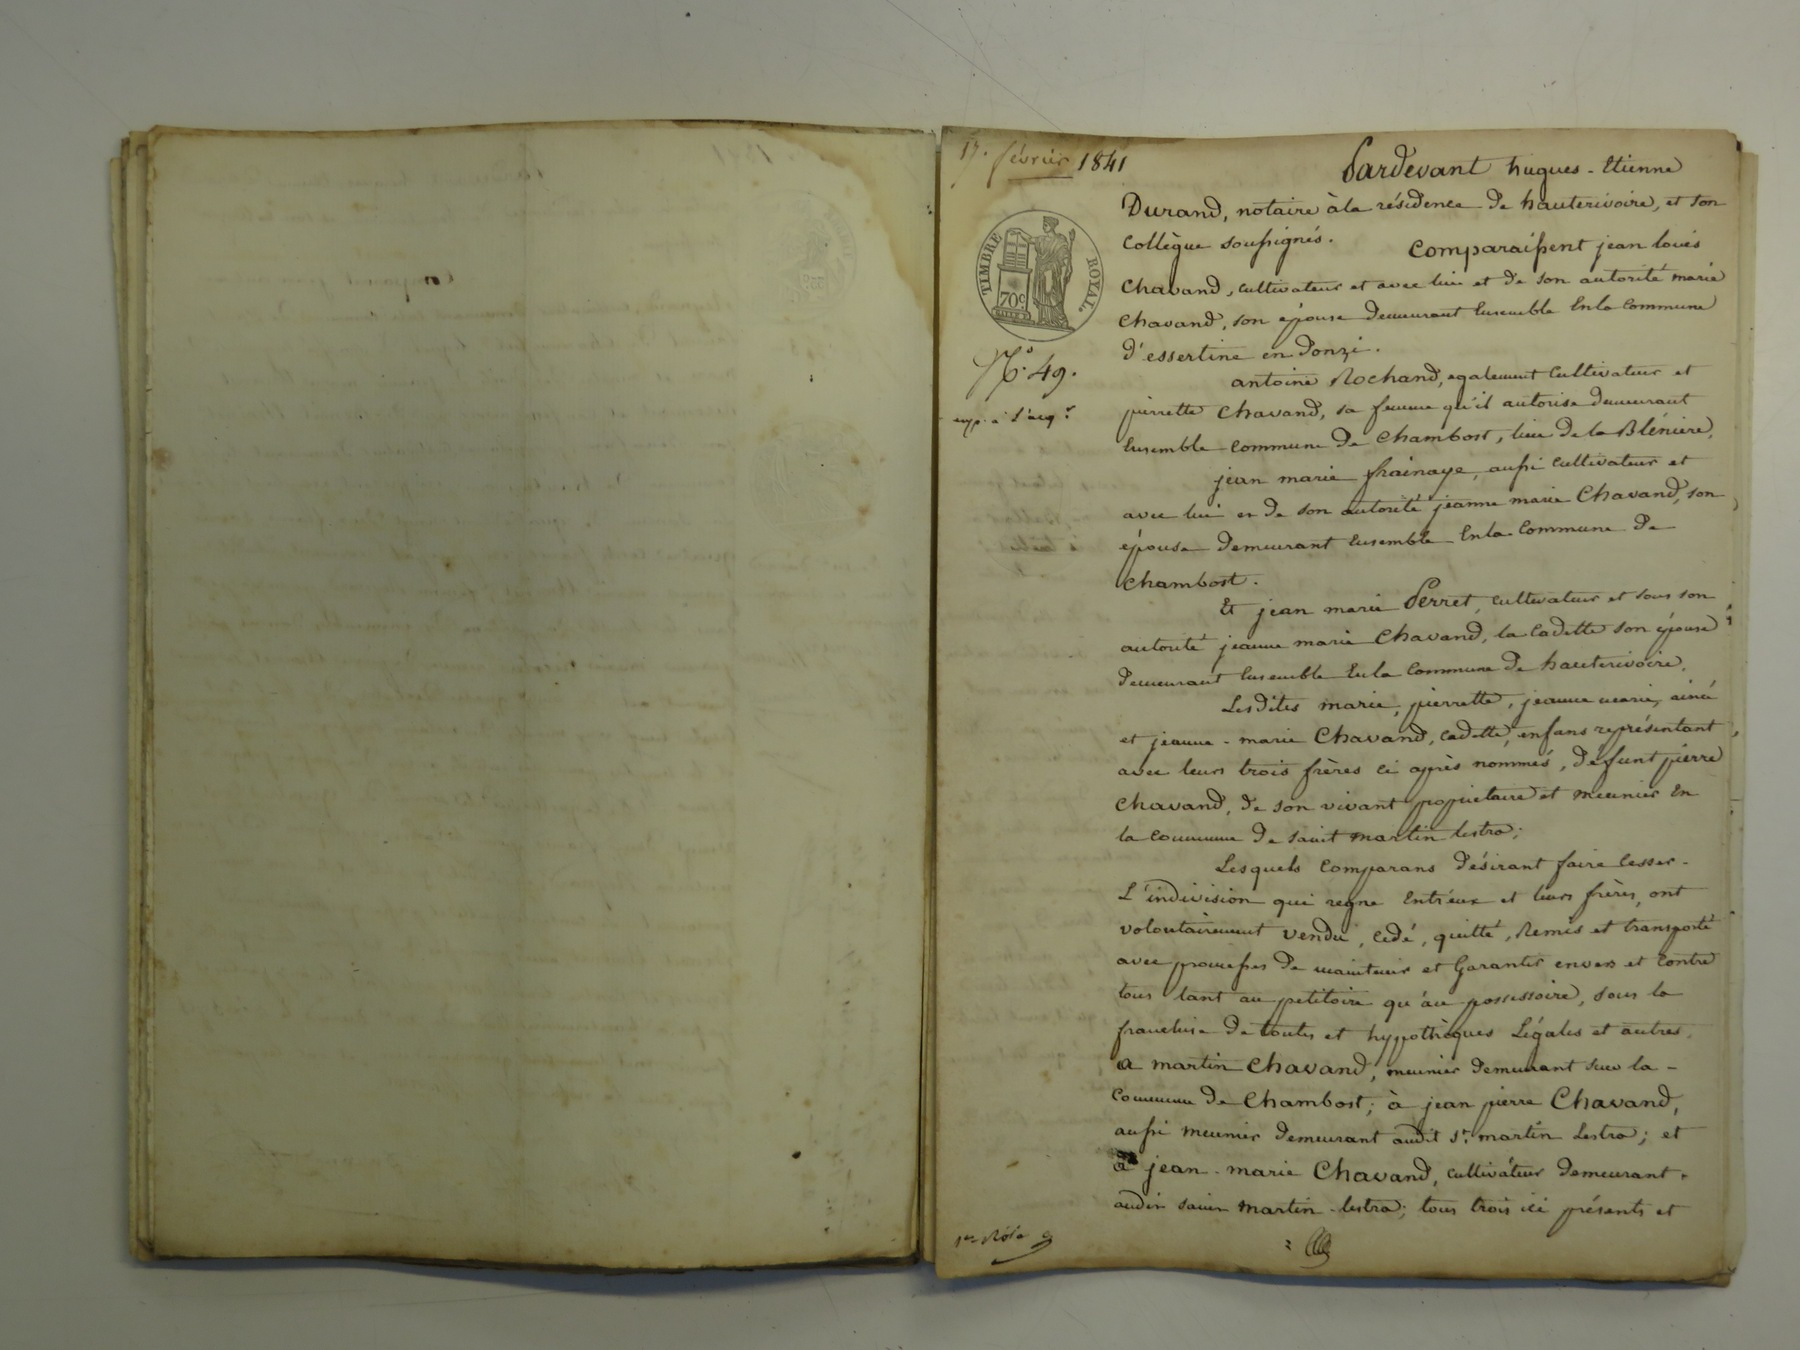 17. février 1841
Pardevant hugues-Etienne
Durand, notaire à la résidence de hauterivoire, et son
Collègue soussignés. Comparaissent jean louis
Chavand, cultivateur et avec lui et de son autorité marie
Chavand, son épouse demeurant Ensemble En la Commune
d'essertine en donzi.
TIMBRE ROYAL.
70c
No. 49.
antoine Rochand, egalement Cultivateur et
pierrette Chavand, sa femme qu'il autorise demeurant
Ensemble commune de Chambost, lieu de la Blénière,
jean marie frainaye, aussi cultivateur et
avec lui et de son autorité jeanne marie Chavand, son
épouse demeurant Ensemble En la Commune de
Chambost.
Et jean marie Perret, cultivateur et sous son
autorité jeanne marie Chavand, la Cadette son épouse
demeurant Ensemble En la Commune de hauterivoire.
Lesdites marie, pierrette, jeanne marie, ainée
et jeanne-marie Chavand, cadette, enfans représentant
avec leurs trois frères ci après nommés, défunt pierre
Chavand, de son vivant propriétaire et meunier En
la commune de saint martin lestra;
Lesquels Comparans désirant faire Cesser
L'indivision qui regne Entr'eux et leurs frères, ont
volontairement vendu, Cédé, quitté, Remis et transporté
avec promesses de maintenir et Garantir envers et Contre
tous tant au petitoire qu'au possessoire, sous la
franchise de toutes et hypothèques Légales et autres
a martin Chavand, meunier demeurant sur la -
Commune de Chambost; à jean pierre Chavand,
aussi meunier demeurant audit st. martin Lestra; et
à jean-marie Chavand, cultivateur demeurant
audit saint martin-lestra; tous trois ici présents et
1er Rôle